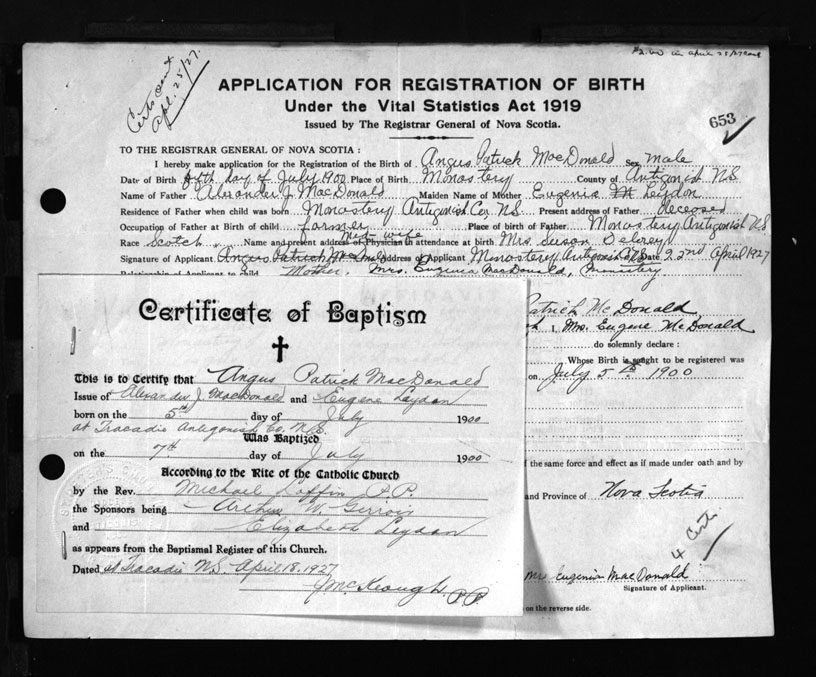 Certs sent
Apl. 25/27.
APPLICATION FOR REGISTRATION OF BIRTH
Under the Vital Statistics Act 1919
Issued by The Registrar General of Nova Scotia.
653
TO THE REGISTRAR GENERAL OF NOVA SCOTIA:
I hereby make application for the Registration of the Birth of Angus Patrick MacDonald Sex male
Date of Birth fifth day of July 1900 Place of Birth Monastery County of Antigonish N.S
Name of Father Alexander J. MacDonald Maiden Name of Mother Eugenia Leydon
Residence of Father when child was born Monastery Antigonish Co, N.S. Present address of Father Deceased
Occupation of Father at Birth of child farmer Place of birth of Father Monastery Antigonish N.S
Mid-wife
Race Scotch Name and present address of Physician in attendance at birth Mrs Susan Delorey
Signature of Applicant Angus Patrick Address of Applicant Monastery Antigonish Co N.S. Date 22nd April 1927
Relationship of Applicant to child Mother, Mrs. Eugenia MacDonald, Monastery
Patrick McDonald
I, Mrs. Eugene McDonald
do solemnly declare:
Whose Birth is sought to be registered was
on July 5th 1900
the same force and effect as if made under oath and by
and Province of Nova Scotia
4 Certs
Mrs Eugenia MacDonald
Signature of Applicant.
on the reverse side.
Certificate of Baptism
This is to Certify that Angus Patrick MacDonald
Issue of Alexander J. MacDonald and Eugene Leydon
born on the 5th day of July 1900
at Tracadie Antigonish Co. N.S.
Was Baptized
on the 7th day of July 1900
According to the Rite of the Catholic Church
by the Rev. Michael Laffin P.P.
the Sponsors being Arthur W. Girroir
and Elizabeth Leydon
as appears from the Baptismal Register of this Church.
Dated at Tracadie N.S. April 18, 1927
J. McKeough, P.P.